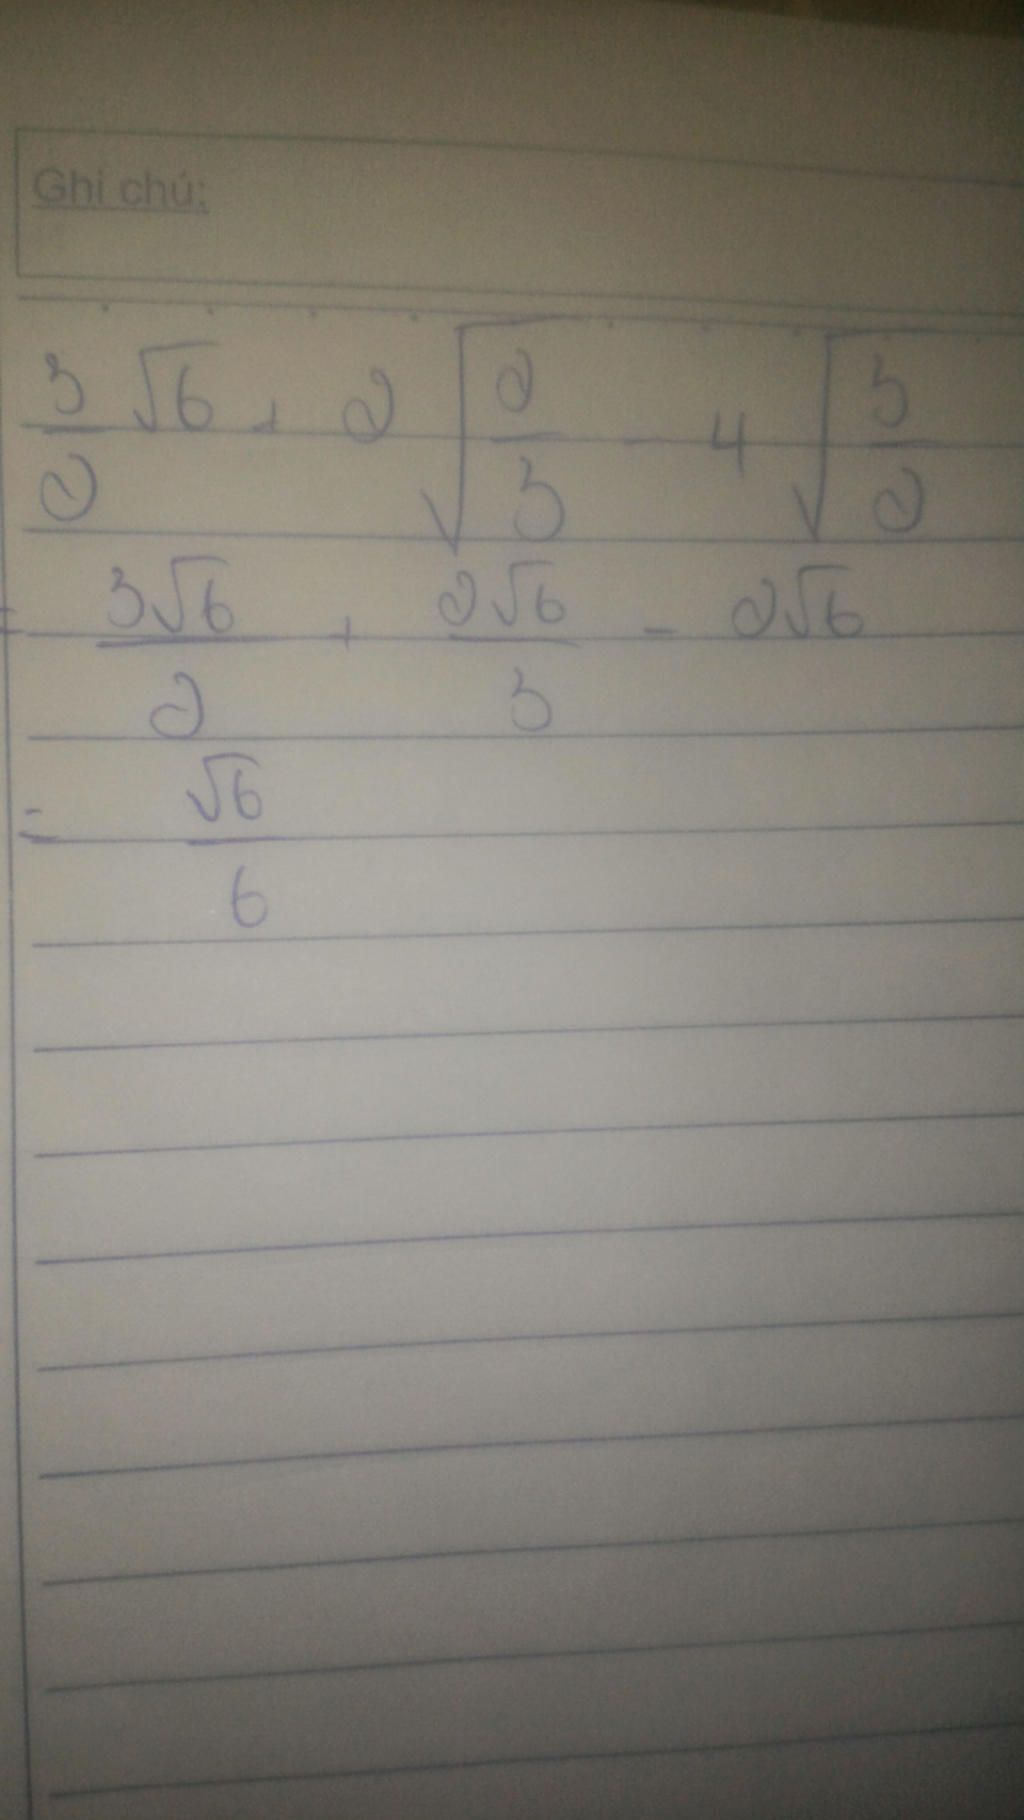 Ghi chú:
3/2 √6 + 2 √(2/3) - 4 √(3/2)
= 3√6/2 + 2√6/3 - 2√6
= √6/6